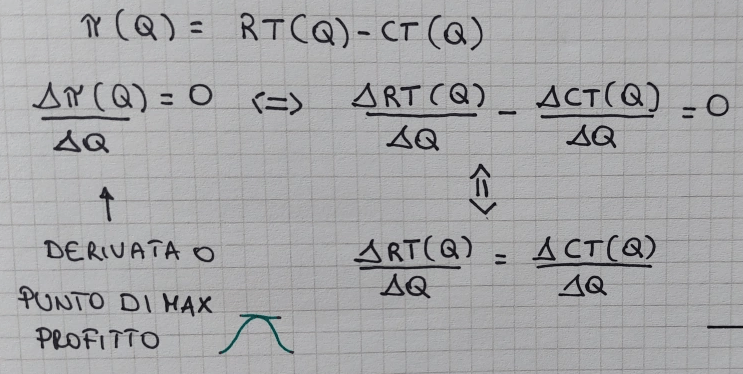 π(Q) = RT(Q) - CT(Q)
Δπ(Q)/ΔQ = 0 <=> ΔRT(Q)/ΔQ - ΔCT(Q)/ΔQ = 0
↑ ⇕
DERIVATA 0 ΔRT(Q)/ΔQ = ΔCT(Q)/ΔQ
PUNTO DI MAX
PROFITTO